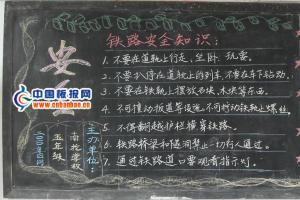 安全
铁路安全知识：
1、不要在道轨上行走、坐卧、玩耍。
2、不要扒停在道轨上的列车，不要在车下钻动。
3、不要在铁轨上摆放石块、木块等东西。
4、不可搬动扳道等设施，不可拧动铁轨上螺丝。
5、不得翻越护栏横穿铁路。
6、铁路桥梁和隧洞禁止一切行人通过。
7、通过铁路道口要观看指示灯。
主办单位：
南抡学校
五年级
中国板报网
www.cnbanbao.cn